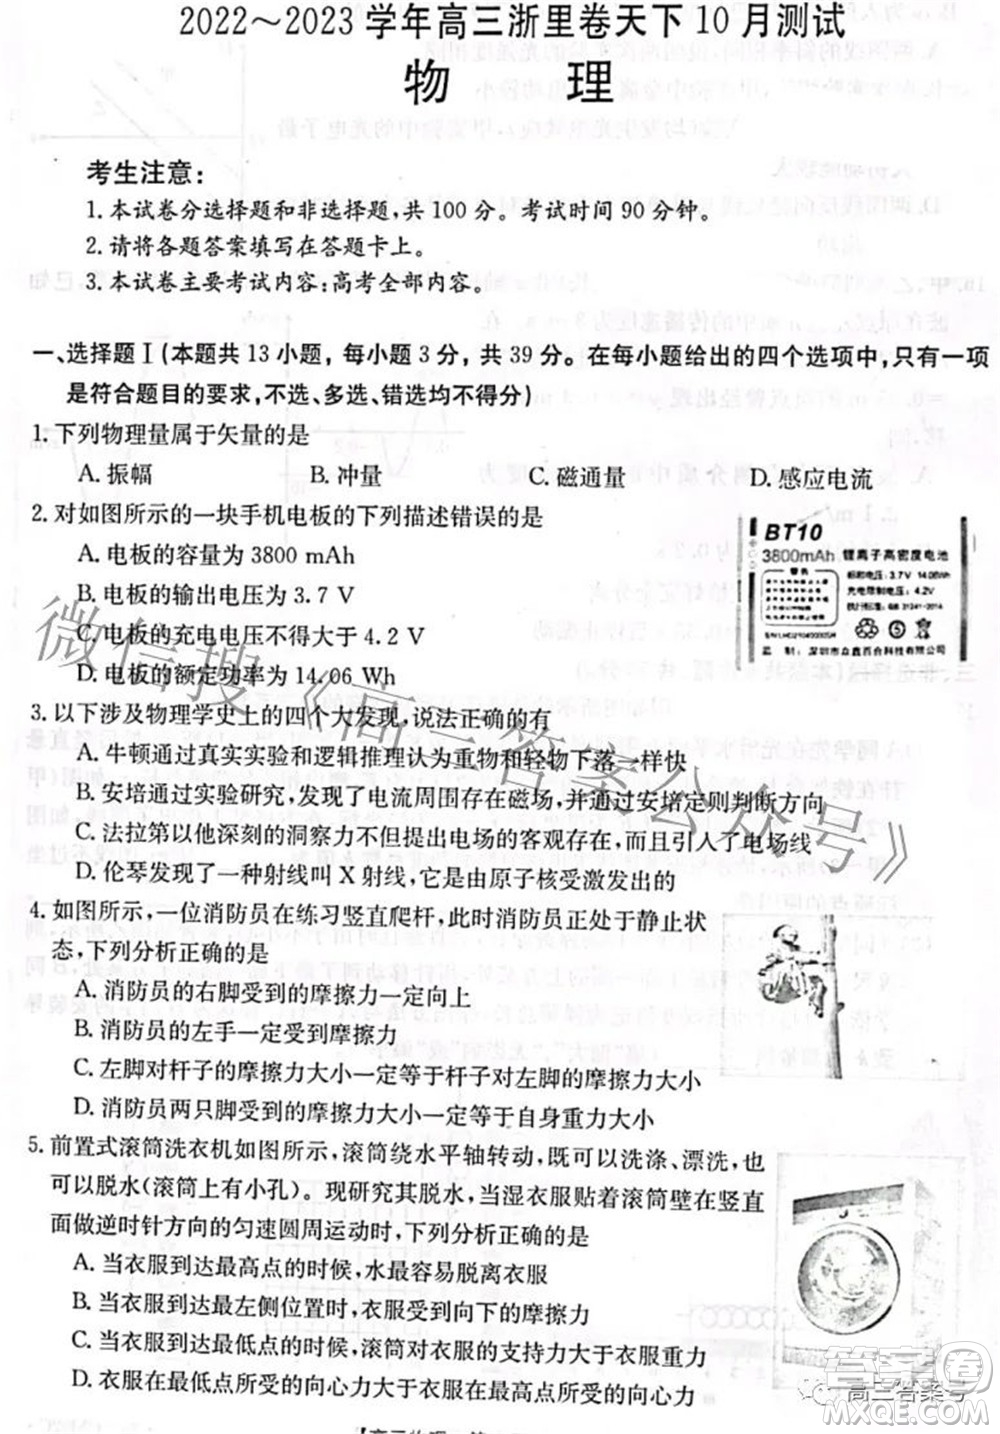 2022～2023学年高三浙里卷天下10月测试
物 理
考生注意：
1.本试卷分选择题和非选择题,共100分。考试时间90分钟。
2.请将各题答案填写在答题卡上。
3.本试卷主要考试内容:高考全部内容。
一、选择题Ⅰ(本题共13小题，每小题3分，共39分。在每小题给出的四个选项中,只有一项
是符合题目的要求,不选、多选、错选均不得分)
1.下列物理量属于矢量的是
A.振幅 B.冲量 C.磁通量 D.感应电流
2.对如图所示的一块手机电板的下列描述错误的是
A.电板的容量为3800 mAh
B.电板的输出电压为3.7 V
C.电板的充电电压不得大于4.2 V
D.电板的额定功率为14.06 Wh
BT10
3800mAh 锂离子高密度电池
警告
标称电压: 3.7V 14.06Wh
充电限制电压: 4.2V
执行标准: GB 31241-2014
监 制: 深圳市众鑫百合科技有限公司
3.以下涉及物理学史上的四个大发现,说法正确的有
A.牛顿通过真实实验和逻辑推理认为重物和轻物下落一样快
B.安培通过实验研究,发现了电流周围存在磁场,并通过安培定则判断方向
C.法拉第以他深刻的洞察力不但提出电场的客观存在,而且引入了电场线
D.伦琴发现了一种射线叫X射线,它是由原子核受激发出的
4.如图所示,一位消防员在练习竖直爬杆,此时消防员正处于静止状
态,下列分析正确的是
A.消防员的右脚受到的摩擦力一定向上
B.消防员的左手一定受到摩擦力
C.左脚对杆子的摩擦力大小一定等于杆子对左脚的摩擦力大小
D.消防员两只脚受到的摩擦力大小一定等于自身重力大小
5.前置式滚筒洗衣机如图所示,滚筒绕水平轴转动,可以洗涤、漂洗,也
可以脱水(滚筒上有小孔)。现研究其脱水,当湿衣服贴着滚筒壁在竖直
面做逆时针方向的匀速圆周运动时,下列分析正确的是
A.当衣服到达最高点的时候,水最容易脱离衣服
B.当衣服到达最左侧位置时,衣服受到向下的摩擦力
C.当衣服到达最低点的时候,滚筒对衣服的支持力大于衣服的重力
D.衣服在最低点所受的向心力大于在最高点所受的向心力
微信搜《高三答案公众号》
答案卷
高三答案号